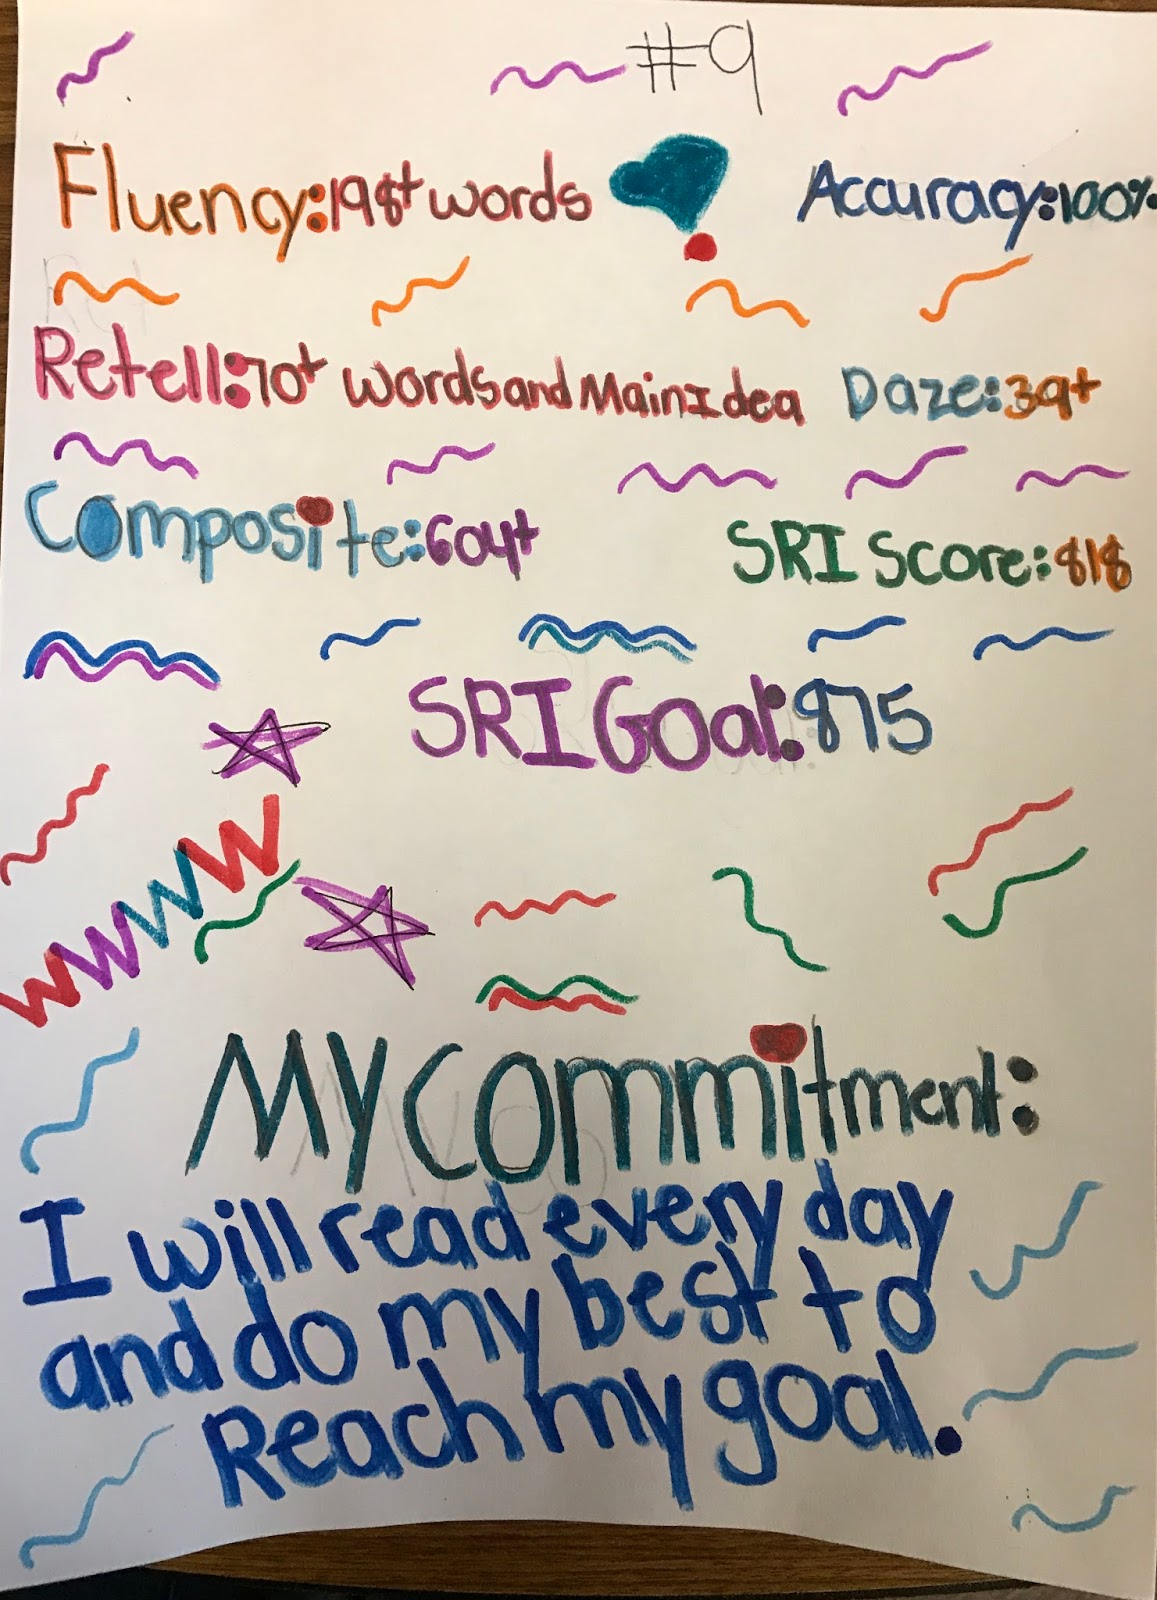 #9
Fluency:198+ words Accuracy:100%
Retell:70+ words and Main Idea Daze:39+
Composite:604+ SRI Score:818
SRI Goal:875
WWWW
My commitment:
I will read every day
and do my best to
Reach my goal.